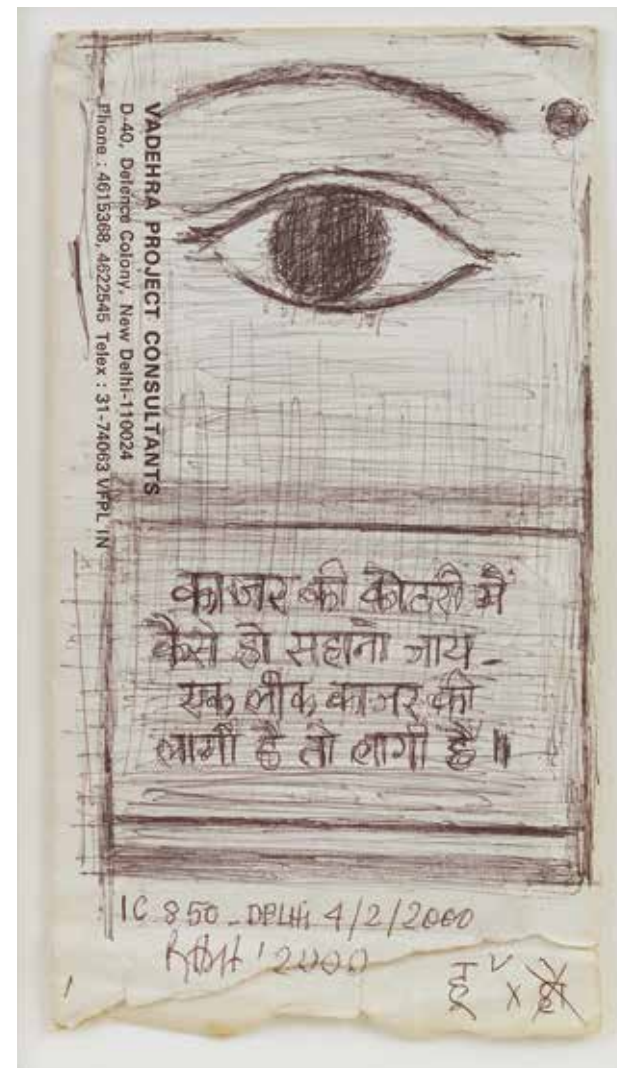 VADEHRA PROJECT CONSULTANTS
D-40, Defence Colony, New Delhi-110024
Phone : 4615368, 4622545 Telex : 31-74063 VFPL IN
काजर की कोठरी में
कैसे हो सहानो जाय -
एक लीक काजर की
लागी है तो लागी है ॥
IC 850 - DELHI 4/2/2000
'2000